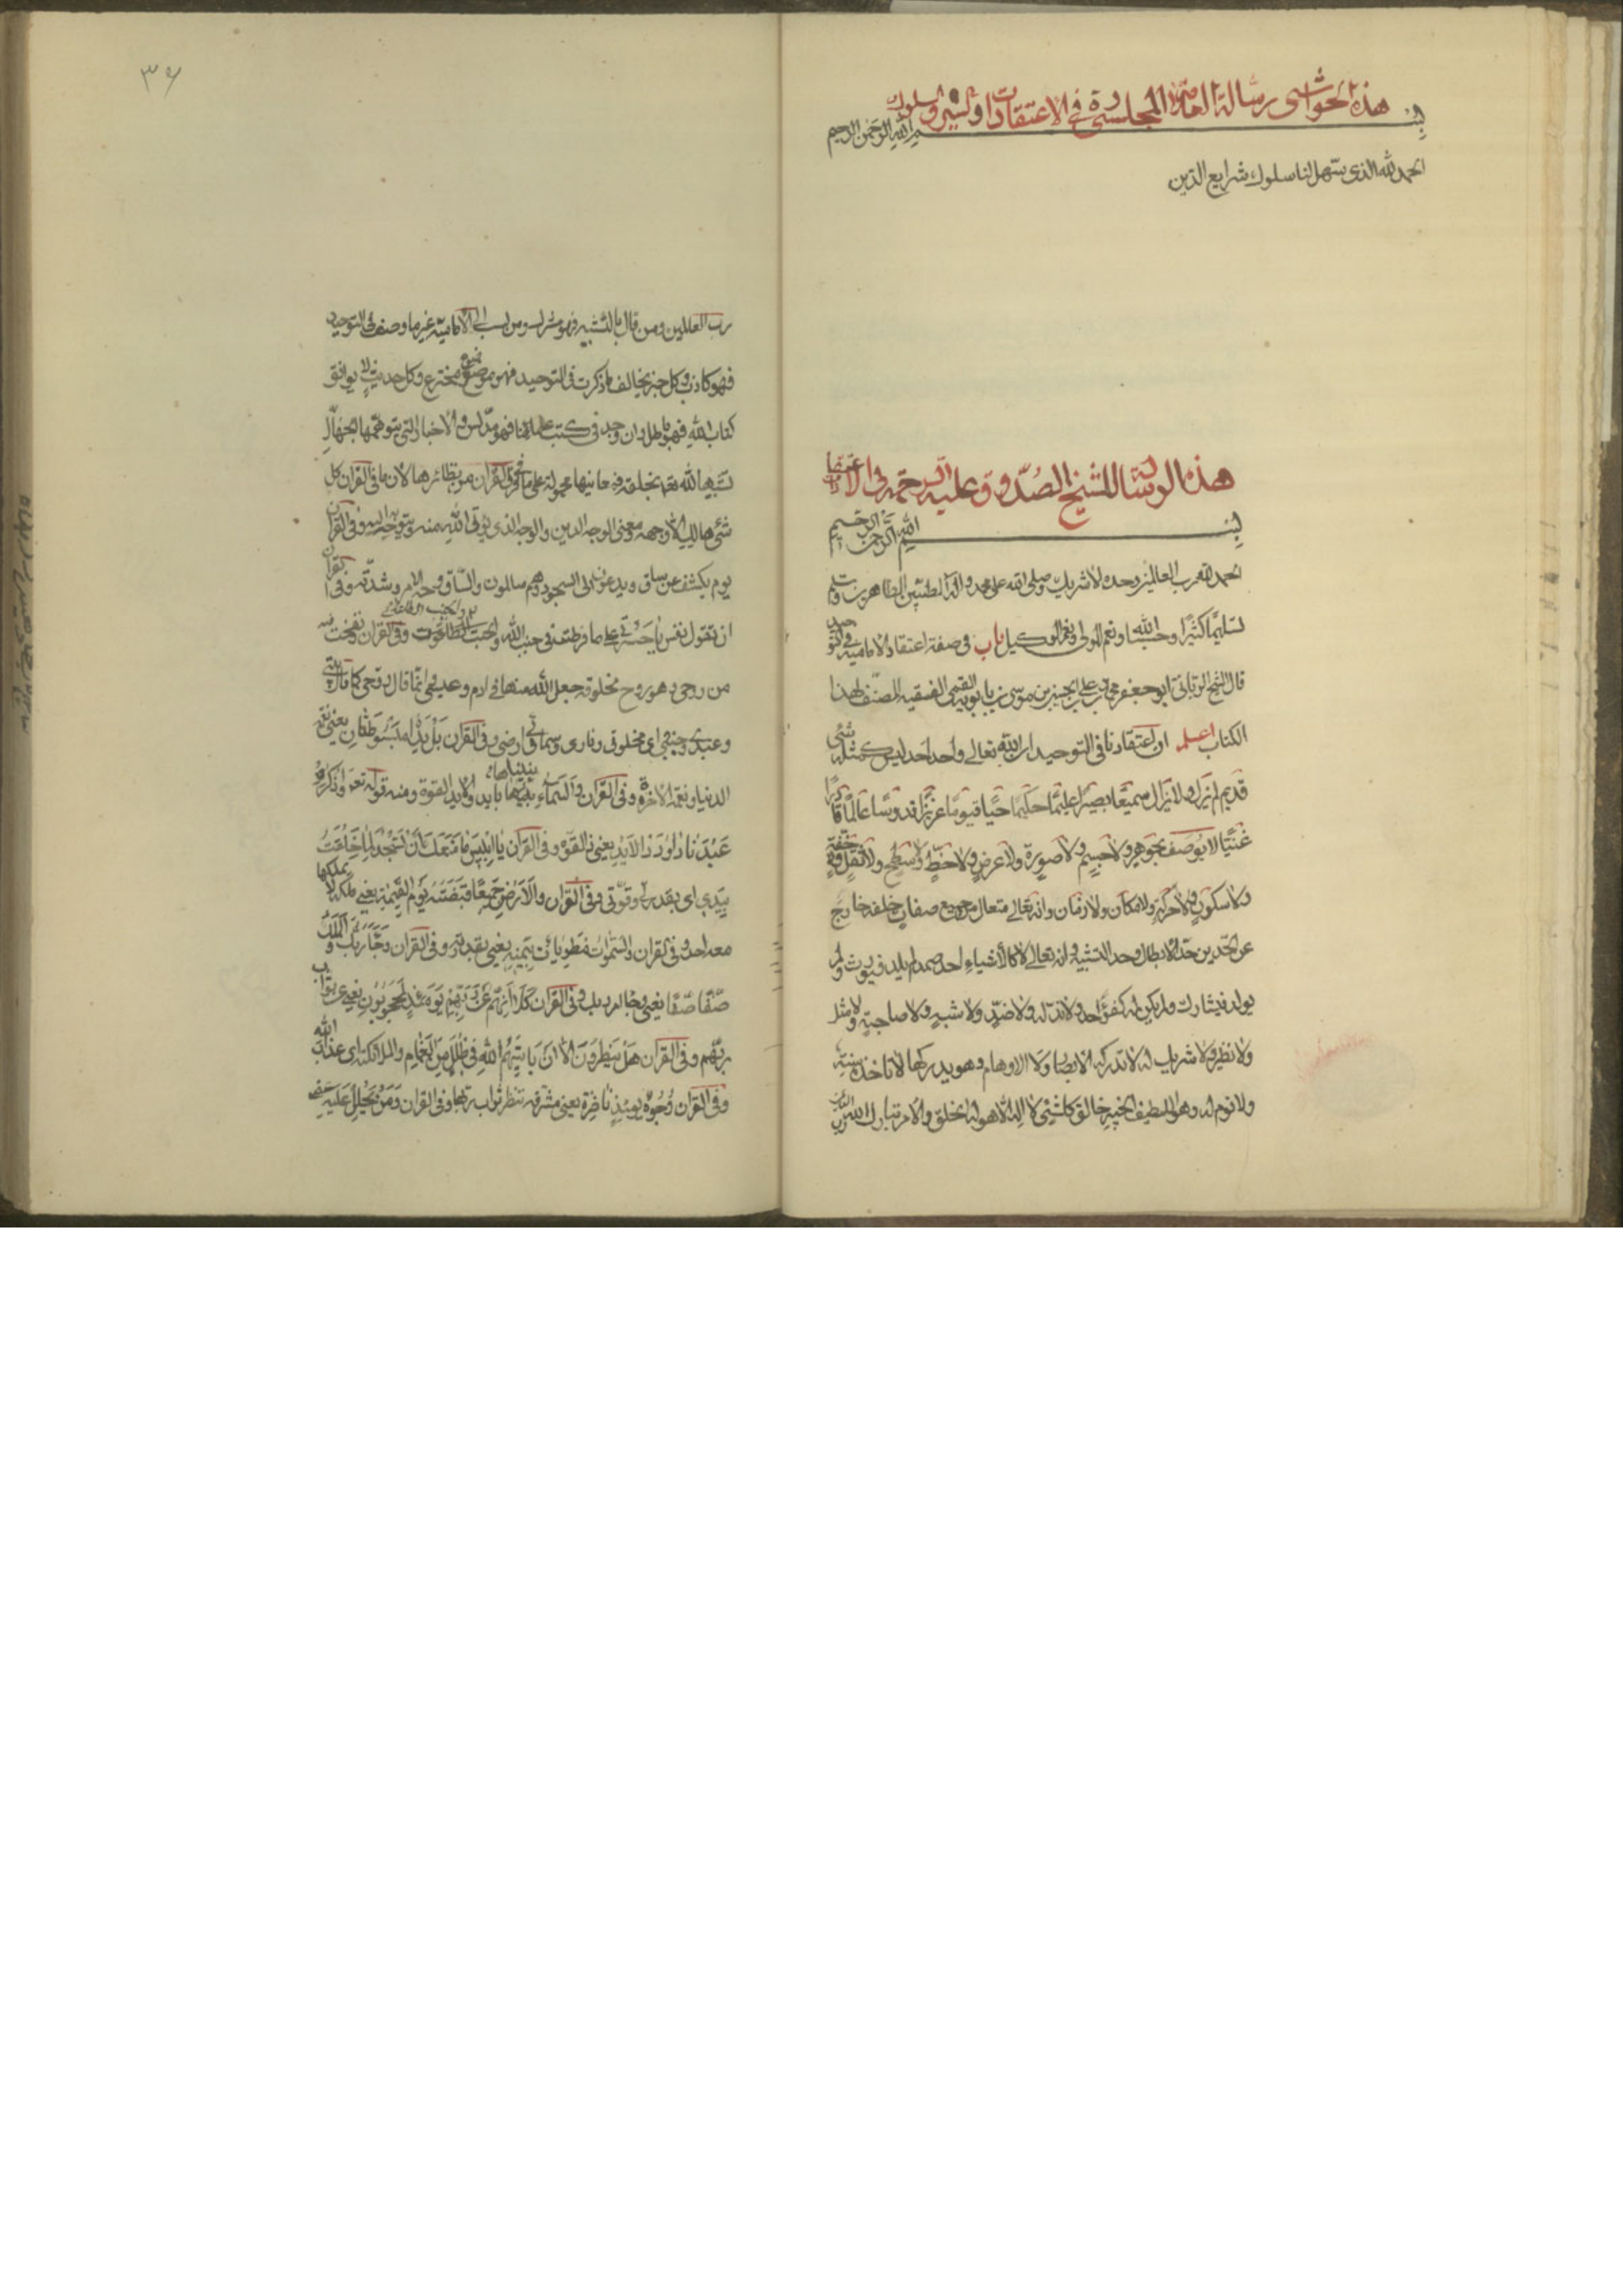 هذه الحواشى رسالة العلامة المجلسى ره فى الاعتقادات والسير والسلوك
بسم الله الرحمن الرحيم
الحمد لله الذى سهل لنا سلوك شرايع الدين
هذه الرسالة للشيخ الصدوق عليه الرحمة فى الاعتقادات
بسم الله الرحمن الرحيم
الحمد لله رب العالمين وحده لا شريك وصلى الله على محمد واله الطيبين الطاهرين وسلم
تسليما كثيرا وحسبنا الله ونعم المولى ونعم الوكيل باب فى صفة اعتقاد الامامية فى التوحيد
قال الشيخ الربانى ابو جعفر محمد بن على بن الحسين بن موسى بن بابويه القمى الفقيه المصنف لهذا
الكتاب اعلم ان اعتقادنا فى التوحيد ان الله تعالى واحد احد ليس كمثله شئ
قديم لم يزل ولا يزال سميعا بصيرا عليما حكيما حيا قيوما عزيزا قدوسا عالما قادرا
غنيا لا يوصف بجوهر ولا جسم ولا صورة ولا عرض ولا خط ولا سطح ولا ثقل ولا خفة
ولا سكون ولا حركة ولا مكان ولا زمان وانه تعالى متعال من جميع صفات خلقه خارج
عن الحدين حد الابطال وحد التشبيه وانه تعالى لا كالأشياء احد صمد لم يلد فيورث ولم
يولد فيشارك ولم يكن له كفوا احد ولا ند له ولا ضد ولا شبه ولا صاحبة ولا مثل
ولا نظير ولا شريك له لا تدركه الابصار ولا الاوهام وهو يدركها لا تاخذه سنة
ولا نوم له وهو اللطيف الخبير خالق كل شئ لا اله الا هو له الخلق والامر تبارك الله رب
٣۶
رب العالمين ومن قال بالتشبيه فهو مشرك ومن نسب الى الامامية غير ما وصف فى التوحيد
فهو كاذب وكل خبر يخالف ما ذكرت فى التوحيد فهو موضوع مخترع وكل حديث لا يوافق
كتاب الله فهو باطل وان وجد فى كتب علمائنا فهو مدلس والاخبار التى يتوهمها الجهال
تشبيها لله تعالى بخلقه فمعانيها محمولة على ما فى القران من نظائرها لان ما فى القران كل
شئ هالك الا وجهه ومعنى الوجه الدين والوجه الذى يؤتى الله منه ويتوجه به اليه وفى القران
يوم يكشف عن ساق ويدعون الى السجود وهم سالمون والساق وجه الامر وشدته وفى القران
ان تقول نفس يا حسرتى على ما فرطت فى جنب الله والجنب الطاعة وفى القران ونفخت فيه
من روحى وهو روح مخلوقة جعل الله منها فى ادم وعيسى وانما قال روحى كما قال بيتى
وعبدى وجنتى اى مخلوقى ونارى وسمائى وارضى وفى القران بل يداه مبسوطتان يعنى نعمة
الدنيا ونعمة الاخرة وفى القران والسماء بنيناها بايد والايد القوة ومنه قوله تعالى واذكر
عبدنا داود ذا الايد يعنى ذا القوة وفى القران يا ابليس ما منعك ان تسجد لما خلقت
بيدى اى بقدرتى وقوتى وفى القران والارض جميعا قبضته يوم القيمة يعنى ملكه لا يملكها
معه احد وفى القران والسموات مطويات بيمينه يعنى بقدرته وفى القران وجاء ربك والملك
صفا صفا يعنى وجاء امر ربك وفى القران كلا انهم عن ربهم يومئذ لمحجوبون يعنى عن ثواب
ربهم وفى القران هل ينظرون الا ان ياتيهم الله فى ظلل من الغمام والملائكة اى عذاب الله
وفى القران وجوه يومئذ ناضرة يعنى مشرقة تنظر ثواب ربها وفى القران ومن يحلل عليه غضبى